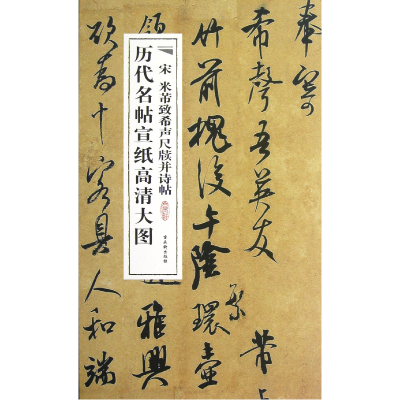 奉寄
希聲吾英友 芾上
竹前槐後午陰環壺
繁
領
雅興
欲為十客具人和端
宋 米芾致希声尺牍并诗帖
历代名帖宣纸高清大图